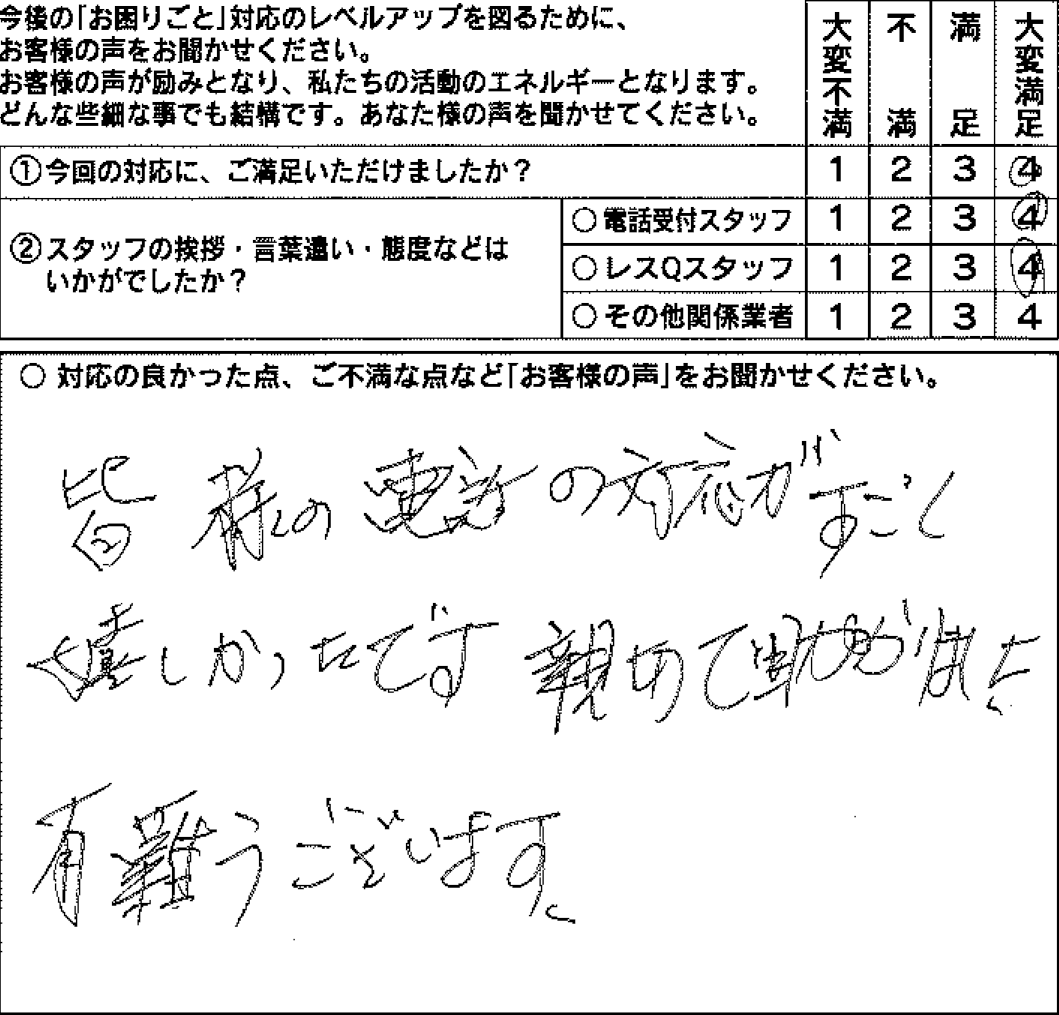 今後の「お困りごと」対応のレベルアップを図るために、
お客様の声をお聞かせください。
お客様の声が励みとなり、私たちの活動のエネルギーとなります。
どんな些細な事でも結構です。あなた様の声を聞かせてください。
大変不満 不満 満足 大変満足
①今回の対応に、ご満足いただけましたか？ 1 2 3 4
②スタッフの挨拶・言葉遣い・態度などは
いかがでしたか？
○電話受付スタッフ 1 2 3 4
○レスQスタッフ 1 2 3 4
○その他関係業者 1 2 3 4
○ 対応の良かった点、ご不満な点など「お客様の声」をお聞かせください。
皆様の電話の対応がすごく
嬉しかったです 親切で助かりました、
有難うございます。